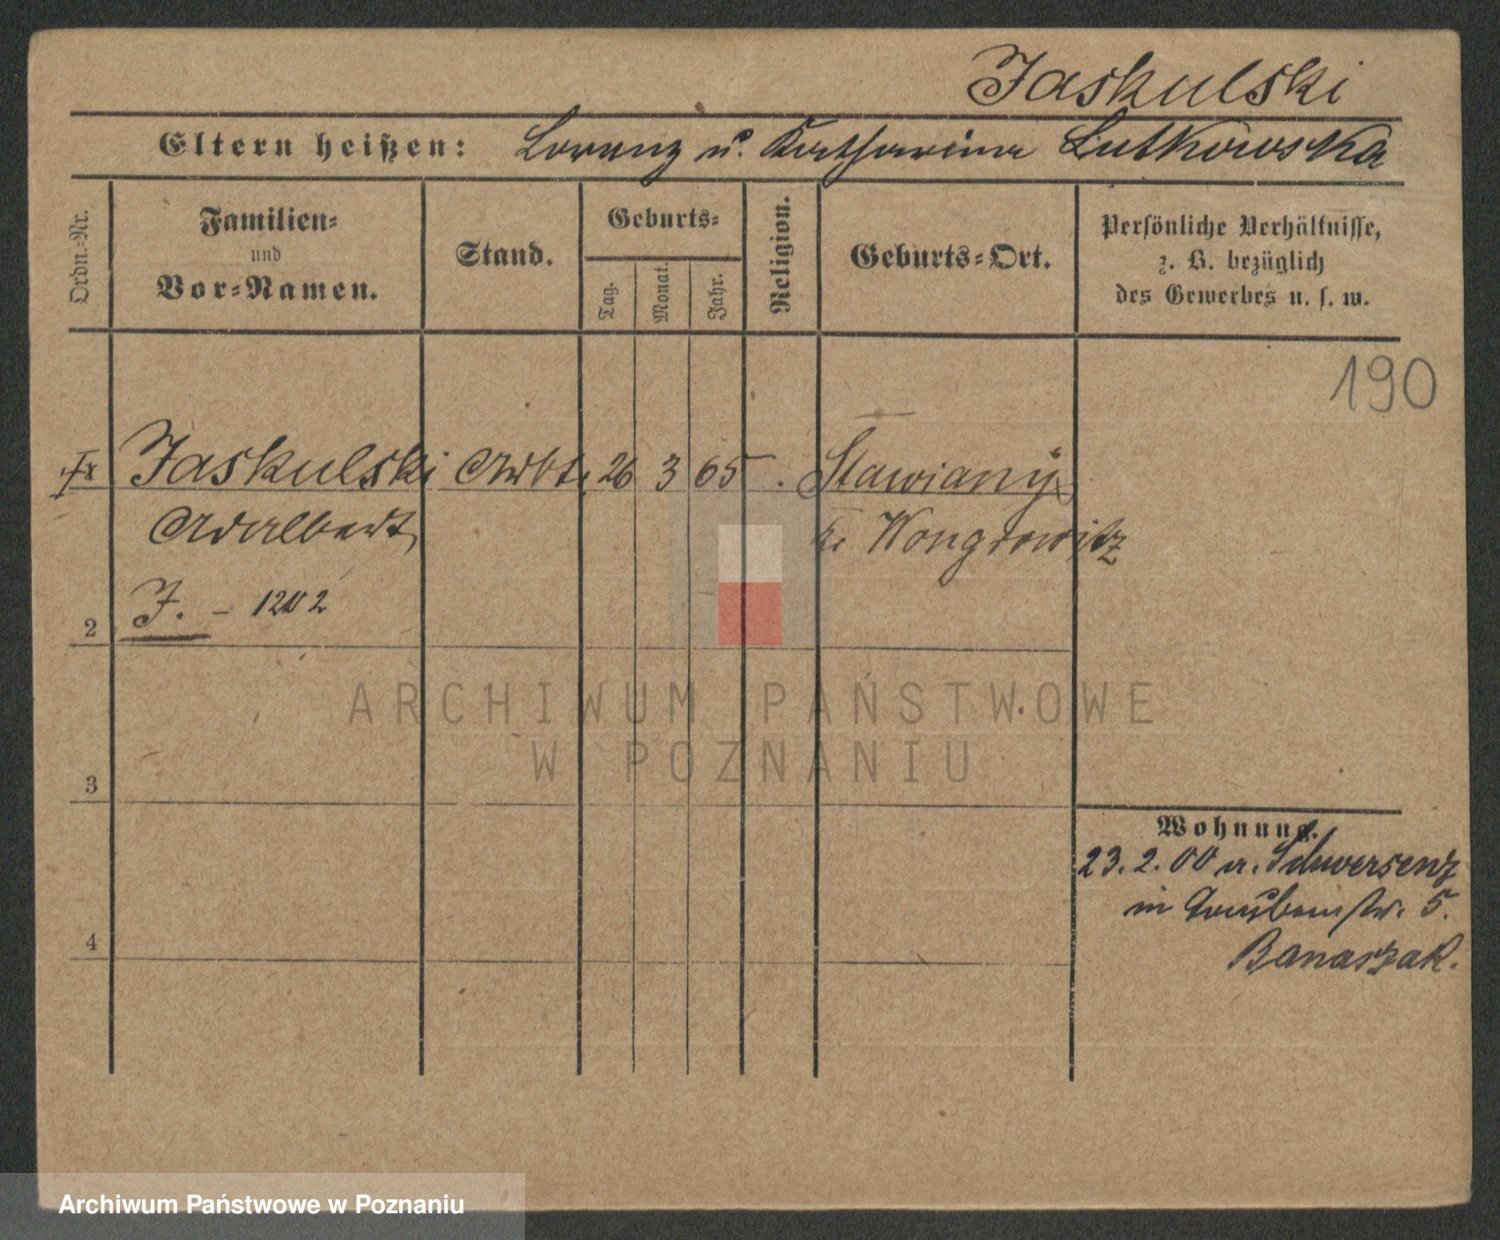 Jaskulski
Eltern heißen: Lorenz u. Katharina Lutkowska
Ordn.=Nr.
Familien=
und
Vor=Namen.
Stand.
Geburts=
Tag.
Monat.
Jahr.
Religion.
Geburts=Ort.
Persönliche Verhältnisse,
z. B. bezüglich
des Gewerbes u. s. w.
190
Jaskulski Arbt. 26 3 65 . Stawiany
Adalbert Kr. Wongrowitz
J. - 1202
2
ARCHIWUM PAŃSTWOWE
W POZNANIU
3
Wohnung.
23.2.00 a. Schwersenz
in Taubenstr. 5.
4
Banaszak.
Archiwum Państwowe w Poznaniu